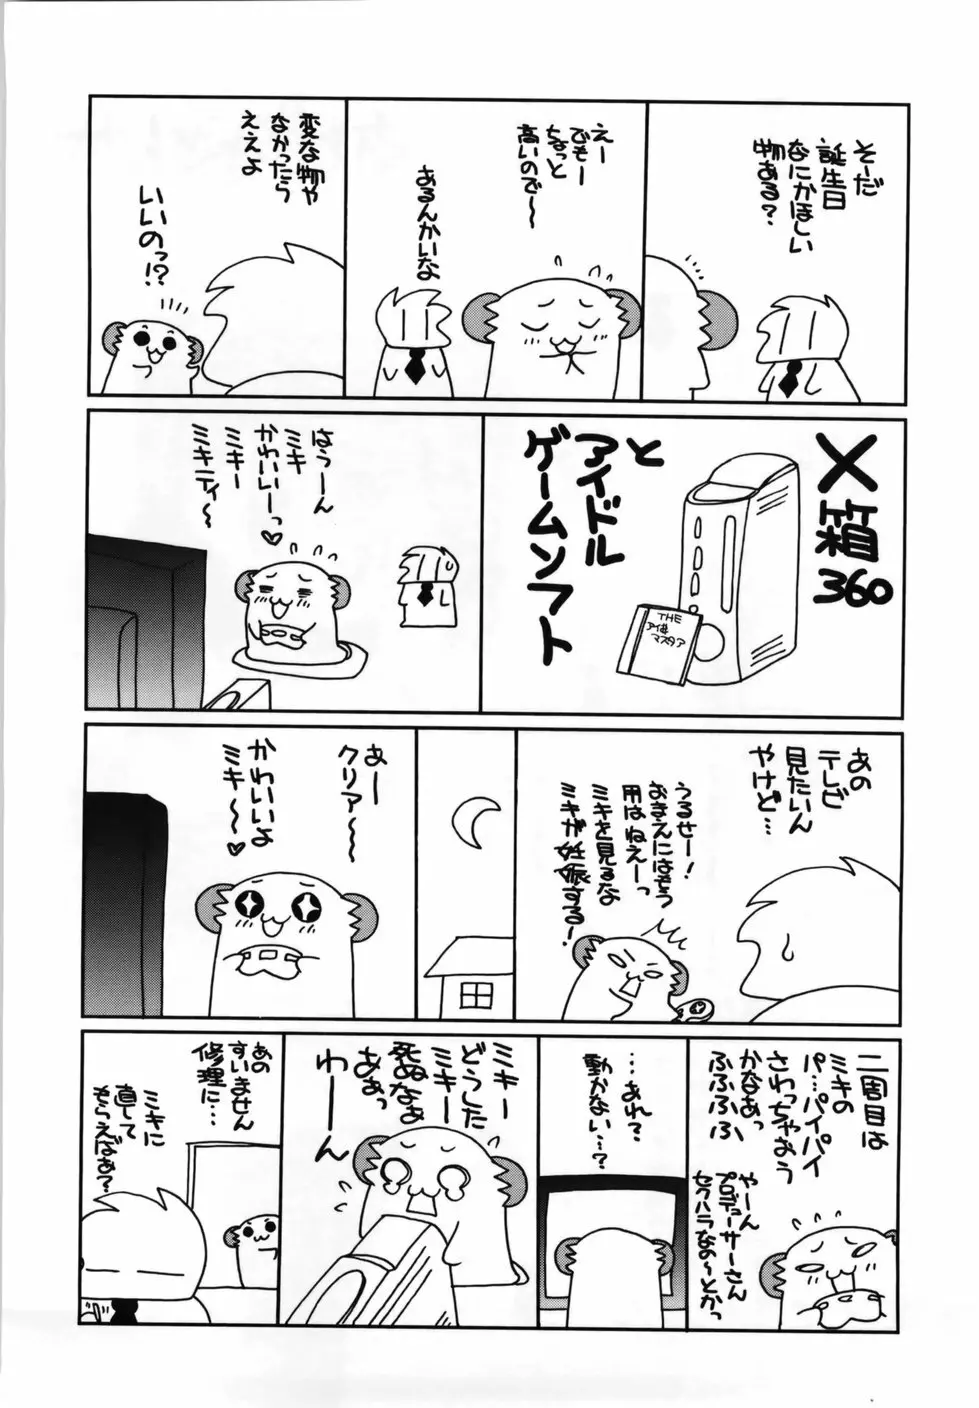 そーだ
誕生日
なにかほしい
物ある？
えー
でもー
ちょっと
高いので～
あるんかいな
変な物や
なかったら
ええよ
いいのっ!?
X箱
360
THE
アイ丼
マスタア
と
アイドル
ゲームソフト
はぅーん
ミキ
かわいいーっ♡
ミキー
ミキティ～
あの
テレビ
見たいん
やけど…
うるせー！
おまえにはもう
用はねえーっ
ミキを見るな
ミキが妊娠する！
あー
クリア～～
かわいいよ
ミキ～～♡
二周目は
ミキの
パ…パイパイ
さわっちゃおう
かなあっ
ふふふふふ
やーん
プロデューサーさん
セクハラなの～とかっ
…あれ？
動かない…？
ミキー
どうした
ミキー
死ぬなぁ
ああっ
わーん
あの
すいません
修理に…
ミキに
直して
もらえばぁ？